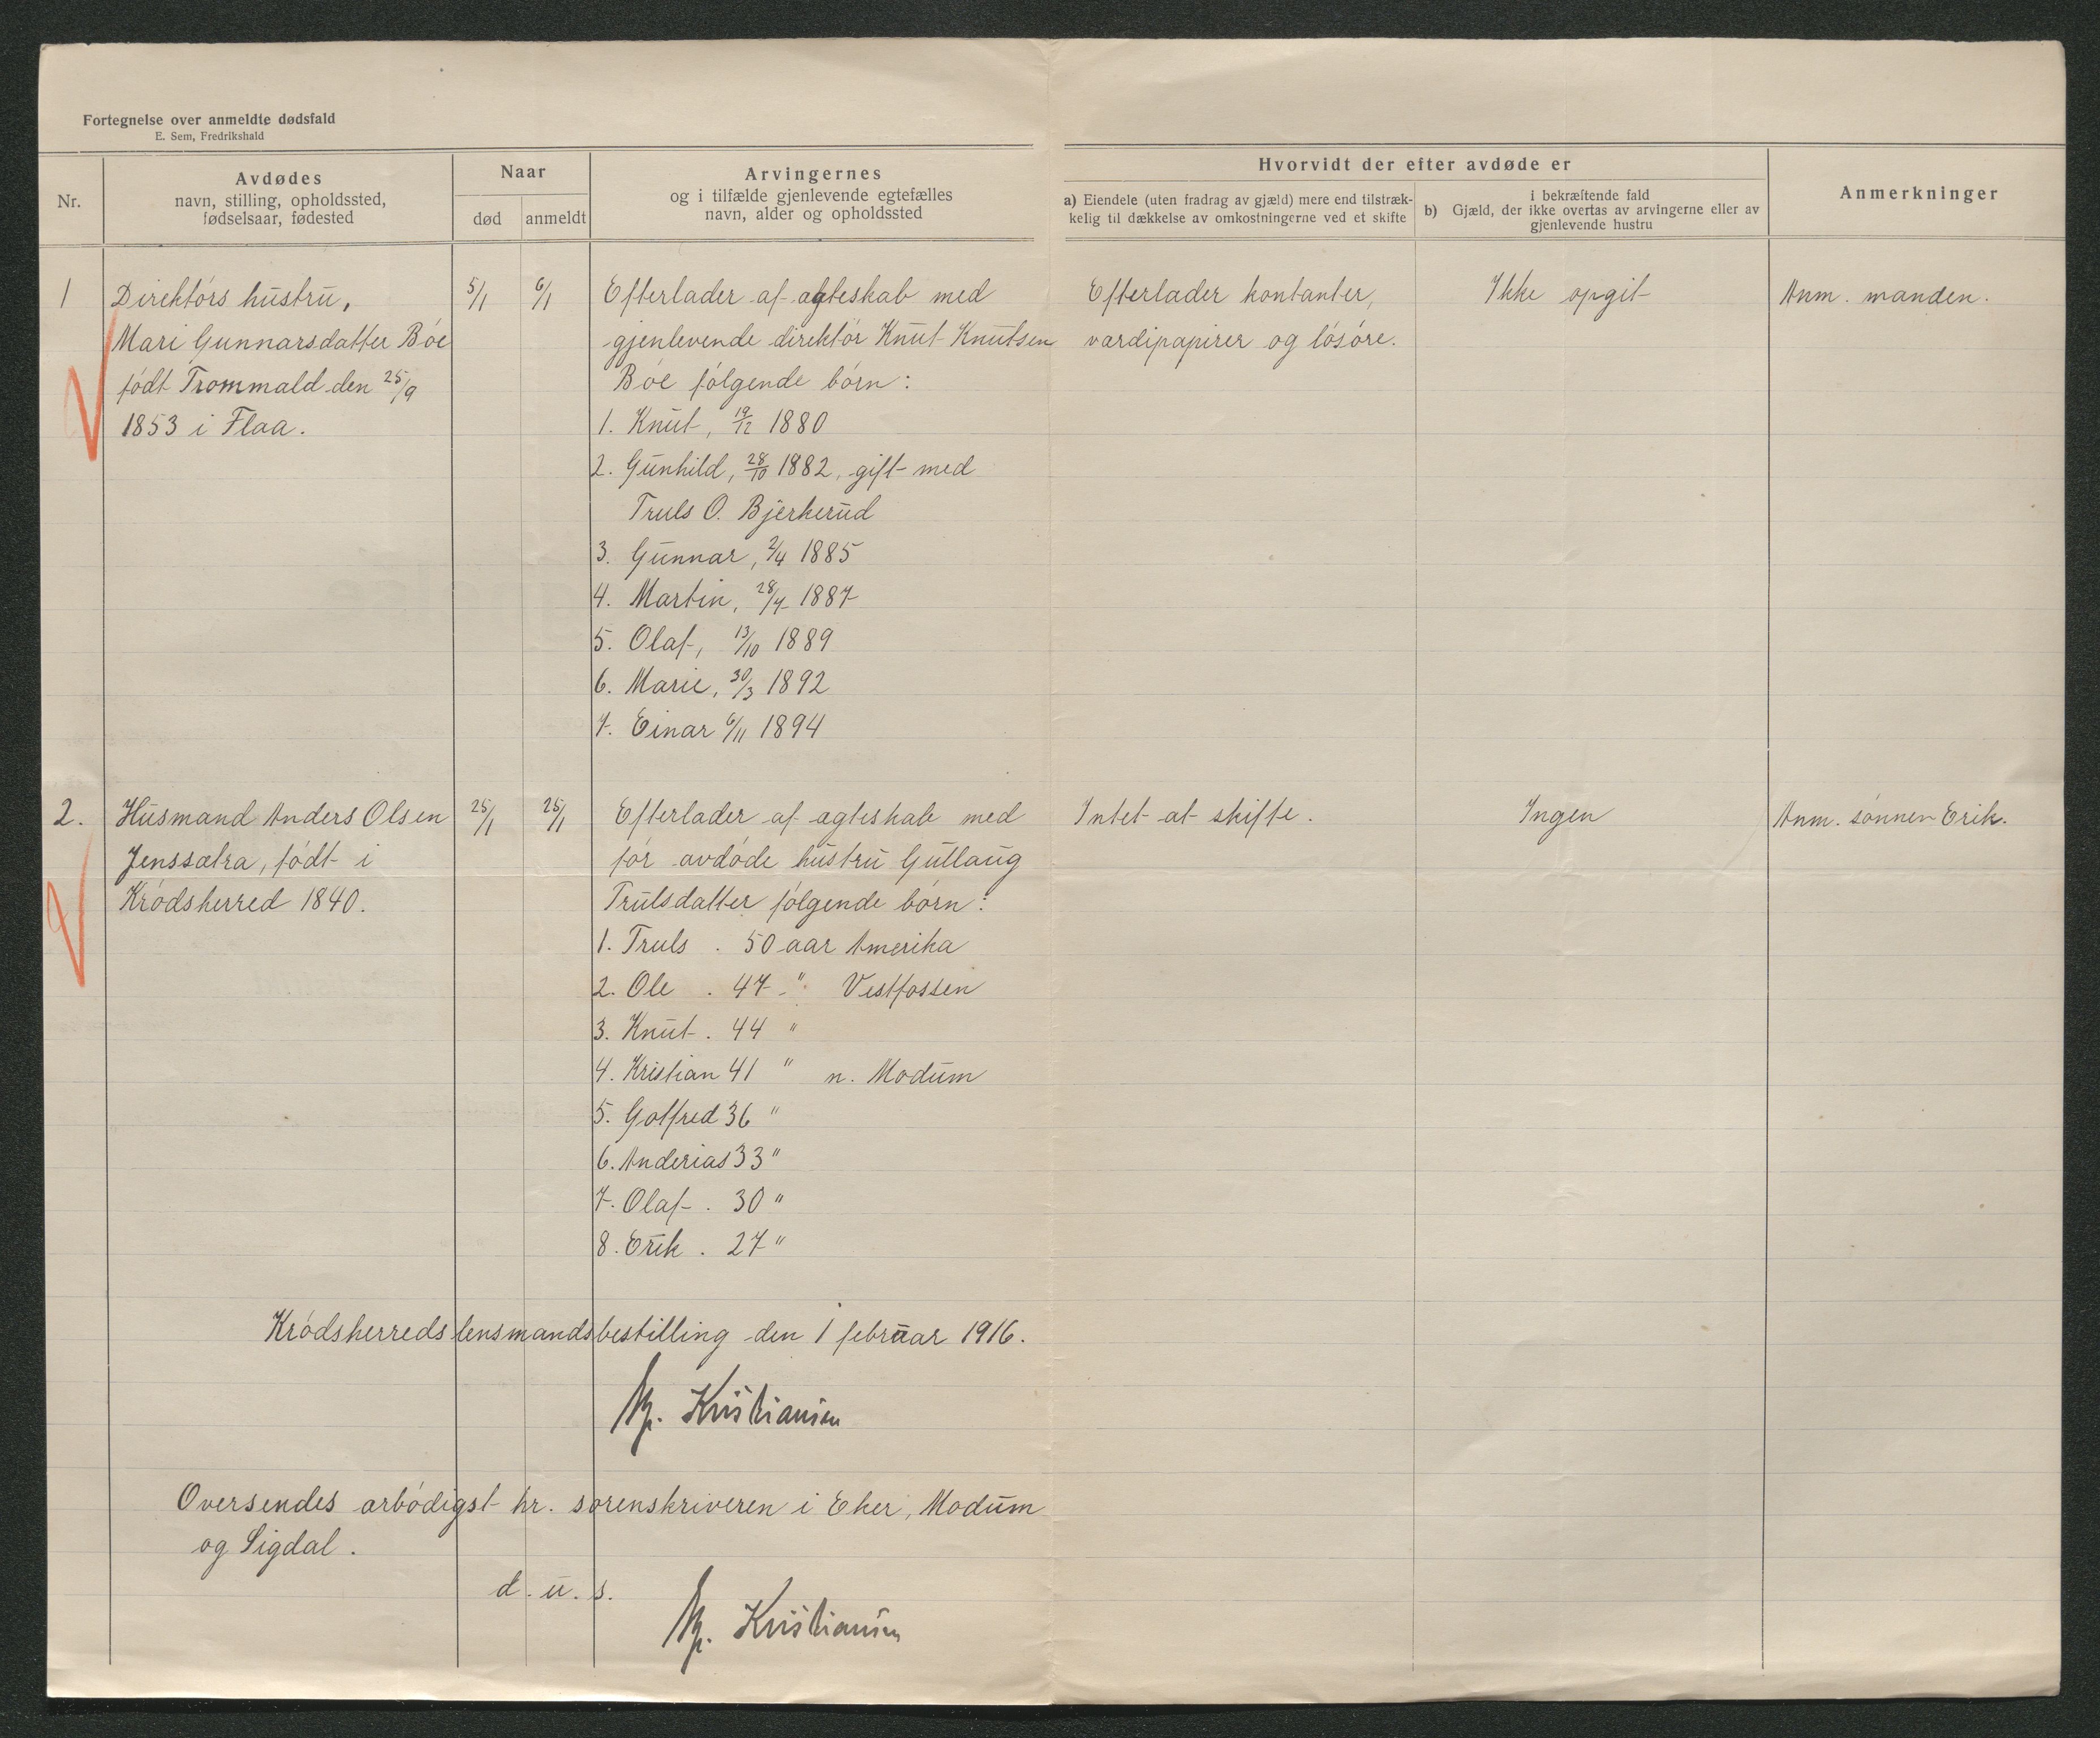 Fortegnelse over anmeldte dødsfald
E. Sem, Fredrikshald
Nr.
Avdødes
navn, stilling, opholdssted,
fødselsaar, fødested
Naar
død
anmeldt
Arvingernes
og i tilfælde gjenlevende egtefælles
navn, alder og opholdssted
Hvorvidt der efter avdøde er
a) Eiendele (uten fradrag av gjæld) mere end tilstræk-
kelig til dækkelse av omkostningerne ved et skifte
i bekræftende fald
b) Gjæld, der ikke overtas av arvingerne eller av
gjenlevende hustru
Anmerkninger
1
Direktørs hustru,
Mari Gunnarsdatter Bøe
født Trommald den 25/9
1853 i Flaa.
5/1
6/1
Efterlader af ægteskab med
gjenlevende direktør Knut Knutsen
Bøe følgende børn:
1. Knut, 19/12 1880
2. Gunhild, 28/10 1882, gift med
Truls O. Bjerkerud
3. Gunnar, 2/4 1885
4. Martin, 28/7 1887
5. Olaf, 13/10 1889
6. Marie, 30/3 1892
7. Einar 6/11 1894
Efterlader kontanter,
værdipapirer og løsøre.
Ikke opgit
Anm. manden.
2.
Husmand Anders Olsen
Jenssætra, født i
Krødsherred 1840.
25/1
25/1
Efterlader af ægteskab med
før avdøde hustru Gullaug
Trulsdatter følgende børn:
1. Truls . 50 aar Amerika
2. Ole . 47 " Vestfossen
3. Knut . 44 "
4. Kristian 41 " n. Modum
5. Gotfred 36 "
6. Anderias 33 "
7. Olaf . 30 "
8. Erik . 27 "
Intet at skifte.
Ingen
Anm. sønnen Erik.
Krødsherreds lensmandsbestilling den 1 februar 1916.
Kristiansen
Oversendes ærbødigst hr. sorenskriveren i Eker, Modum
og Sigdal.
d. u. s.
Kristiansen